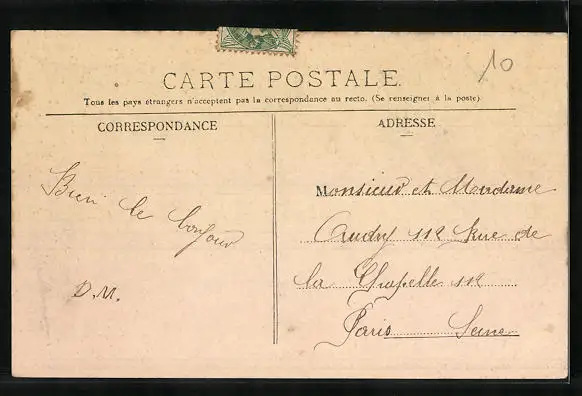 10
CARTE POSTALE.
Tous les pays étrangers n'acceptent pas la correspondance au recto. (Se renseigner à la poste)
CORRESPONDANCE
ADRESSE
Bien le bonjour
D. M.
Monsieur et Madame
Audry 112 Rue de
la Chapelle 112
Paris Seine